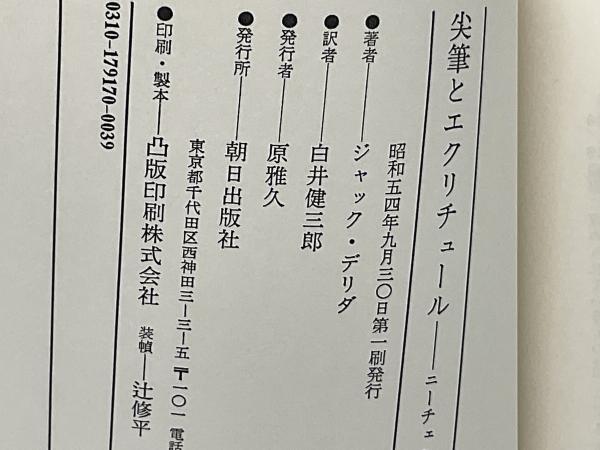 尖筆とエクリチュール――ニーチェ
昭和五四年九月三〇日第一刷発行
●著者――ジャック・デリダ
●訳者――白井健三郎
●発行者――原雅久
●発行所――朝日出版社
東京都千代田区西神田三―三―五 〒一〇一 電話
●印刷・製本――凸版印刷株式会社 装幀――辻修平
0310-179170-0039